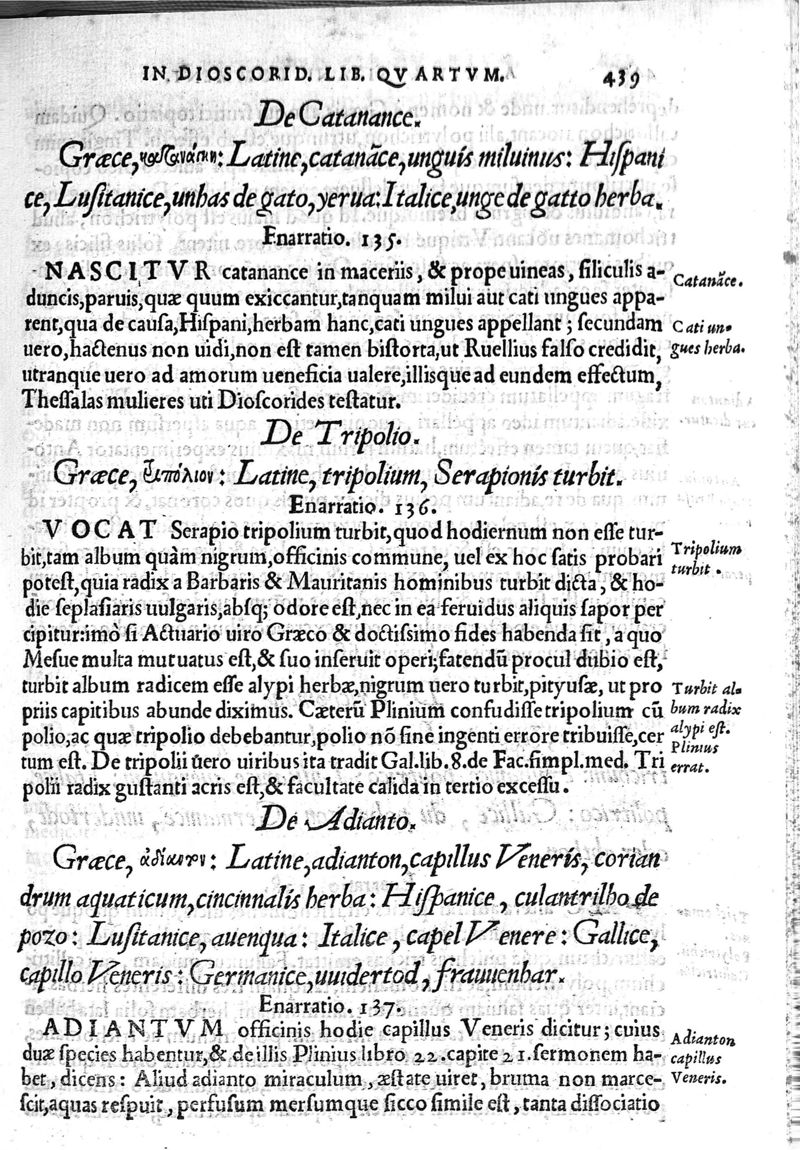 IN DIOSCORID. LIB. QVARTVM. 439
De Catanance.
Græce, κατανάγκη: Latine, catanāce, unguis miluinus: Hispani
ce, Lusitanice, unhas de gato, yerua: Italice, unge de gatto herba.
Enarratio. 135.
NASCITVR catanance in maceriis, & prope uineas, siliculis a-
duncis, paruis, quæ quum exiccantur, tanquam milui aut cati ungues appa-
rent, qua de causa, Hispani, herbam hanc, cati ungues appellant; secundam
uero, hactenus non uidi, non est tamen bistorta, ut Ruellius falso credidit,
utranque uero ad amorum ueneficia ualere, illisque ad eundem effectum,
Thessalas mulieres uti Dioscorides testatur.
Catanāce.
Cati un-
gues herba.
De Tripolio.
Græce, τριπόλιον: Latine, tripolium, Serapionis turbit.
Enarratio. 136.
VOCAT Serapio tripolium turbit, quod hodiernum non esse tur-
bit, tam album quàm nigrum, officinis commune, uel ex hoc satis probari
potest, quia radix a Barbaris & Mauritanis hominibus turbit dicta, & ho-
die seplasiaris uulgaris, absq; odore est, nec in ea feruidus aliquis sapor per
cipitur: imò si Actuario uiro Græco & doctissimo fides habenda sit, a quo
Mesue multa mutuatus est, & suo inseruit operi, fatendū procul dubio est,
turbit album radicem esse alypi herbæ, nigrum uero turbit, pityusæ, ut pro
priis capitibus abunde diximus. Cæterū Plinium confudisse tripolium cū
polio, ac quæ tripolio debebantur, polio nō sine ingenti errore tribuisse, cer
tum est. De tripolii ūero uiribus ita tradit Gal. lib. 8. de Fac. simpl. med. Tri
polii radix gustanti acris est, & facultate calida in tertio excessu.
Tripolium
turbit.
Turbit al-
bum radix
alypi est.
Plinius
errat.
De Adianto.
Græce, ἀδίαντον: Latine, adianton, capillus Veneris, corian
drum aquaticum, cincinnalis herba: Hispanice, culantrilho de
pozo: Lusitanice, auenqua: Italice, capel Venere: Gallice,
capillo Veneris: Germanice, uuidertod, frauuenhar.
Enarratio. 137.
ADIANTVM officinis hodie capillus Veneris dicitur; cuius
duæ species habentur, & de illis Plinius libro 22. capite 21. sermonem ha-
bet, dicens: Aliud adianto miraculum, æstate uiret, bruma non marce-
scit, aquas respuit, perfusum mersumque sicco simile est, tanta dissociatio
Adianton
capillus
Veneris.